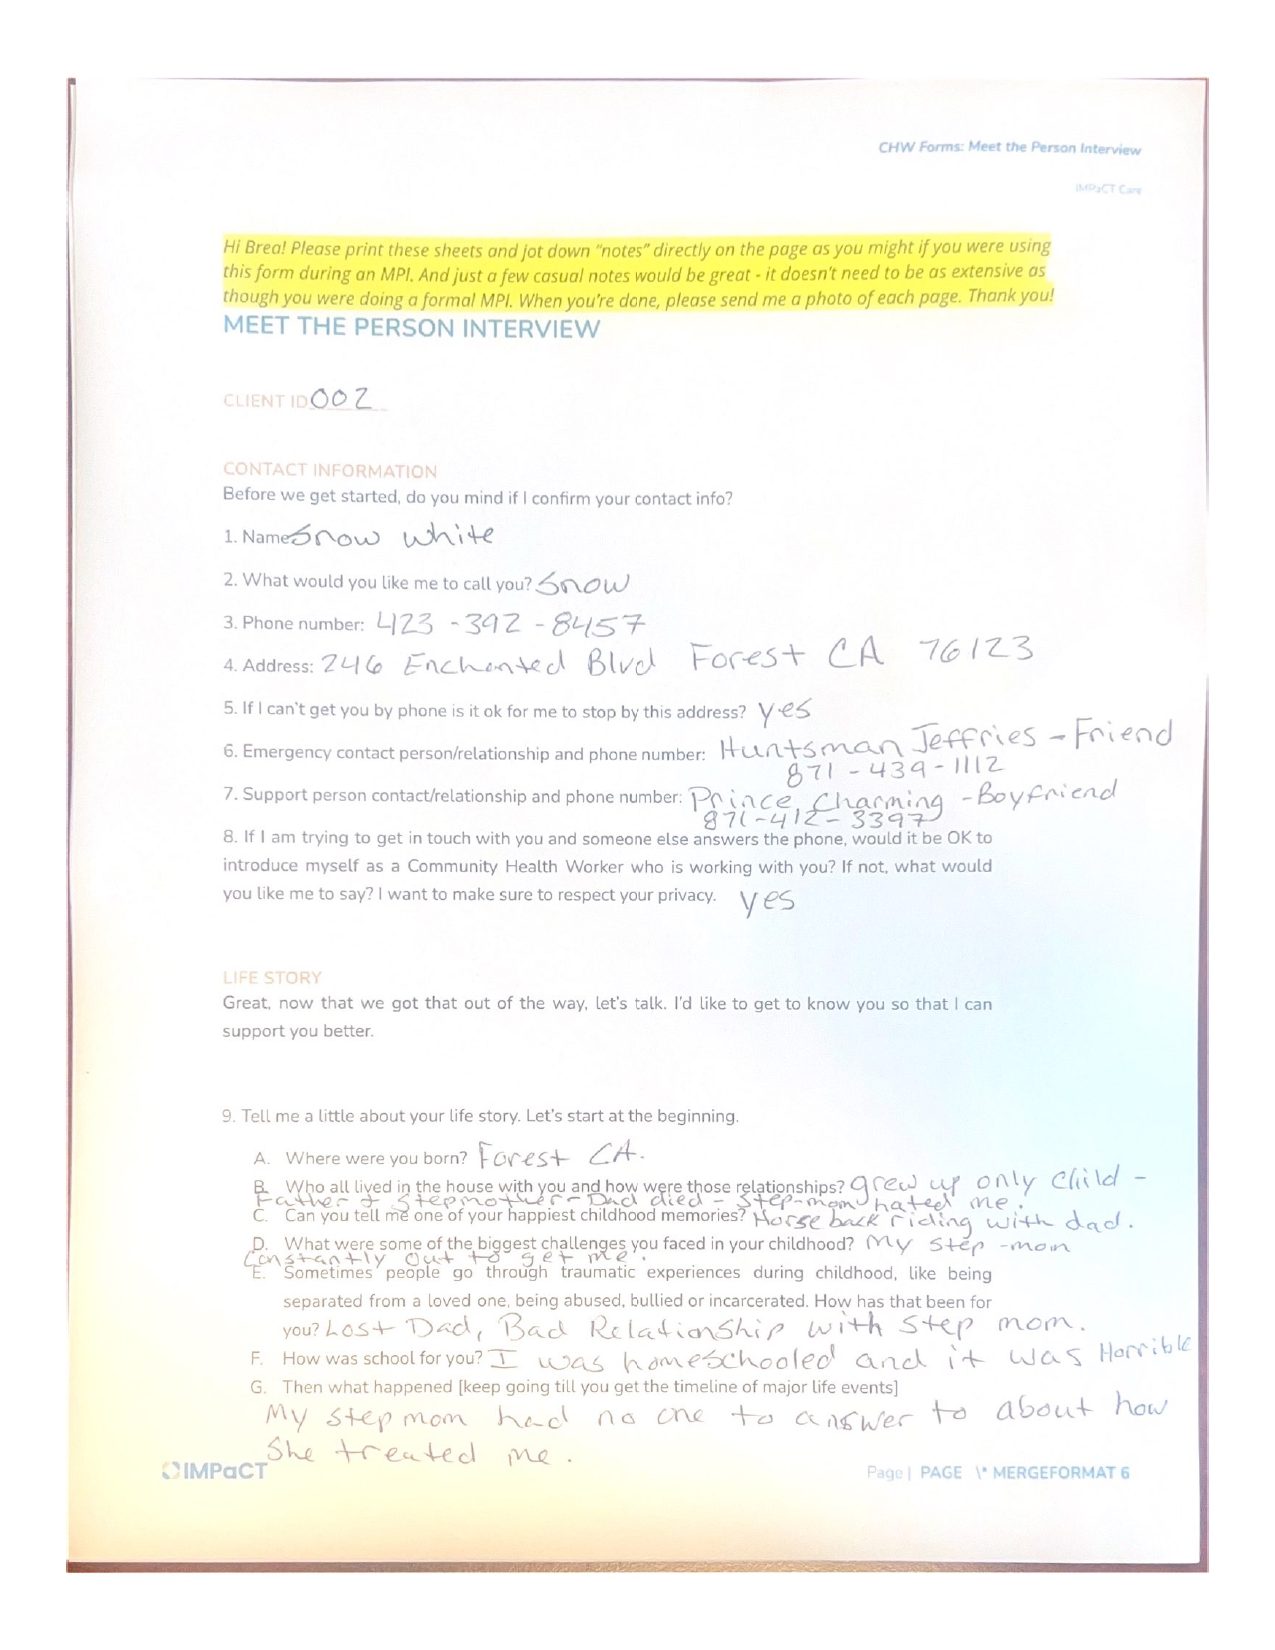 CHW Forms: Meet the Person Interview
IMPaCT Care
Hi Brea! Please print these sheets and jot down "notes" directly on the page as you might if you were using
this form during an MPI. And just a few casual notes would be great - it doesn't need to be as extensive as
though you were doing a formal MPI. When you're done, please send me a photo of each page. Thank you!
MEET THE PERSON INTERVIEW
CLIENT ID 002
CONTACT INFORMATION
Before we get started, do you mind if I confirm your contact info?
1. Name Snow White
2. What would you like me to call you? Snow
3. Phone number: 423-392-8457
4. Address: 246 Enchanted Blvd Forest CA 76123
5. If I can't get you by phone is it ok for me to stop by this address? yes
6. Emergency contact person/relationship and phone number: Huntsman Jeffries - Friend
871-439-1112
7. Support person contact/relationship and phone number: Prince Charming - Boyfriend
871-412-3397
8. If I am trying to get in touch with you and someone else answers the phone, would it be OK to
introduce myself as a Community Health Worker who is working with you? If not, what would
you like me to say? I want to make sure to respect your privacy. yes
LIFE STORY
Great, now that we got that out of the way, let's talk. I'd like to get to know you so that I can
support you better.
9. Tell me a little about your life story. Let's start at the beginning.
A. Where were you born? Forest CA.
B. Who all lived in the house with you and how were those relationships? grew up only child -
Father & Stepmother - Dad died - Step-mom hated me.
C. Can you tell me one of your happiest childhood memories? Horse back riding with dad.
D. What were some of the biggest challenges you faced in your childhood? My step-mom
Constantly out to get me.
E. Sometimes people go through traumatic experiences during childhood, like being
separated from a loved one, being abused, bullied or incarcerated. How has that been for
you? Lost Dad, Bad Relationship with step mom.
F. How was school for you? I was homeschooled and it was Horrible
G. Then what happened [keep going till you get the timeline of major life events]
My step mom had no one to answer to about how
She treated me.
IMPaCT
Page | PAGE \* MERGEFORMAT 6